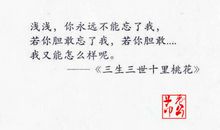 浅浅，你永远不能忘了我，
若你胆敢忘了我，若你胆敢....
我又能怎么样呢。
——《三生三世十里桃花》